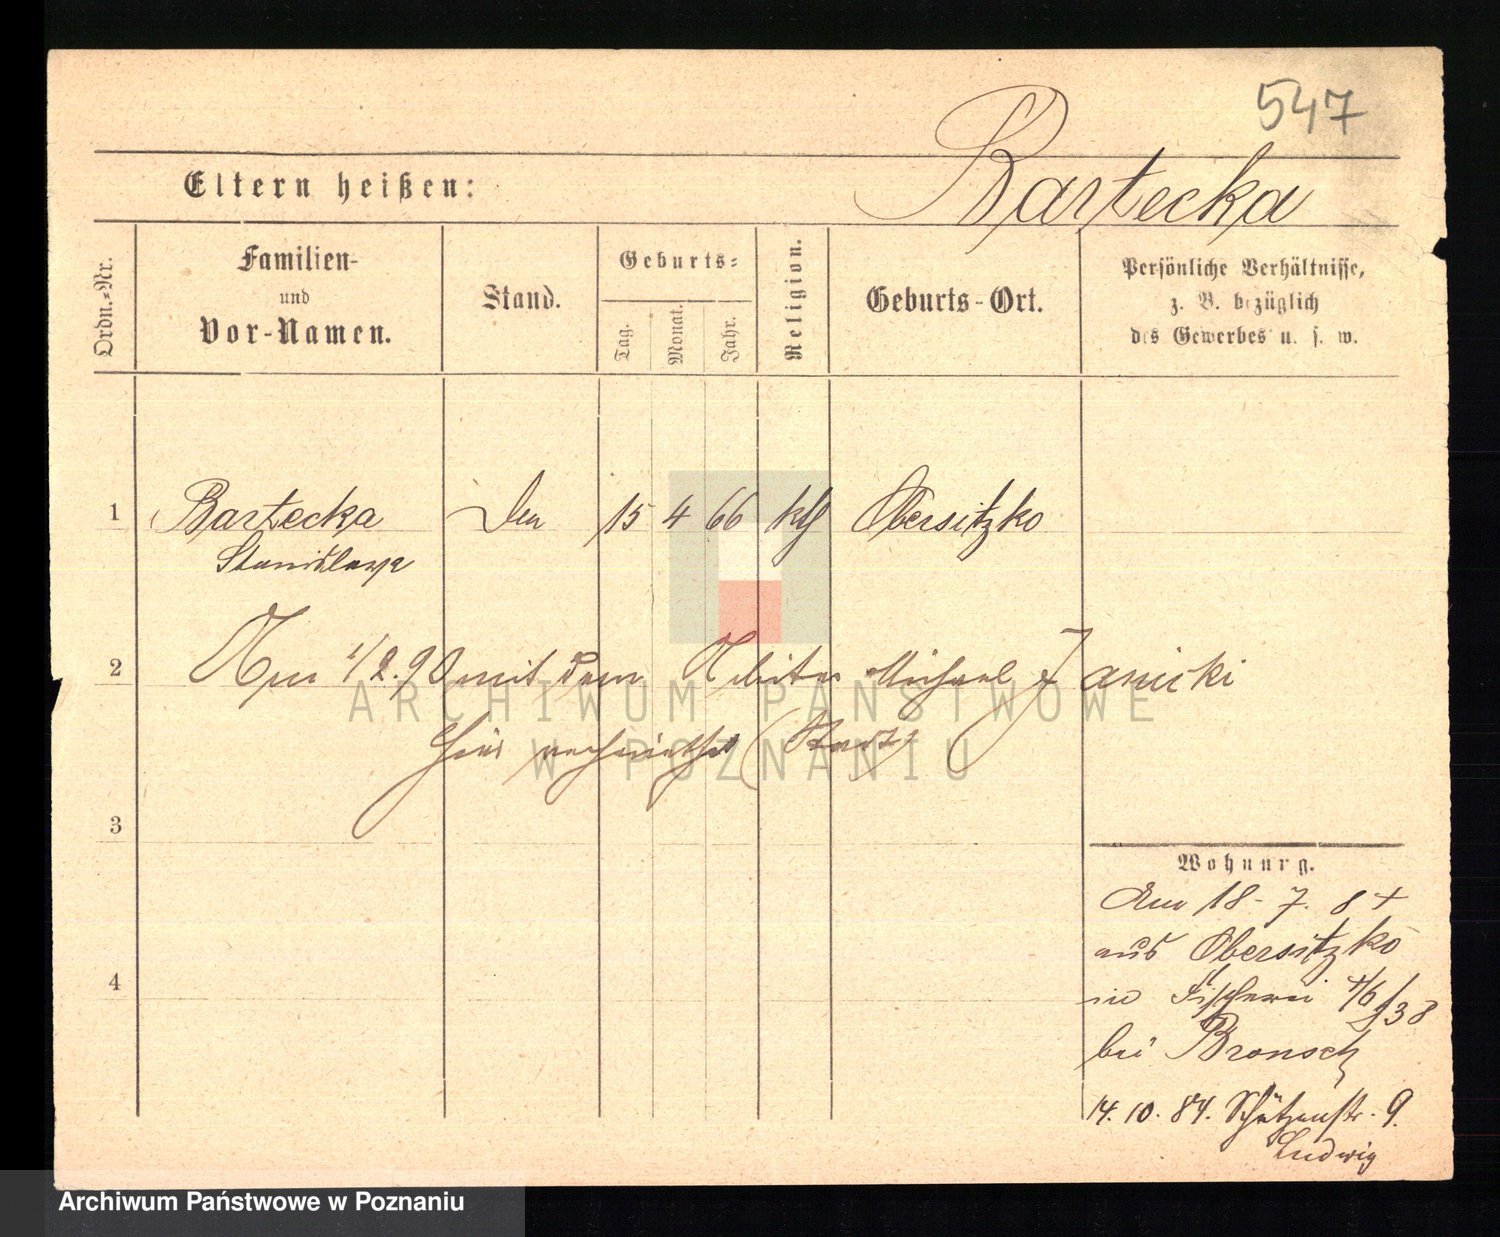 547
Bartecka
Eltern heißen:
Ordn.=Nr.
Familien-
und
Vor-Namen.
Stand.
Geburts=
Tag.
Monat.
Jahr.
Religion.
Geburts-Ort.
Persönliche Verhältnisse,
z. B. bezüglich
des Gewerbes u. s. w.
1 Bartecka 15 4 66 kth Obersitzko
Stanislawa
2 1/2.90 mit dem Michael Janicki
ARCHIWUM PAŃSTWOWE
W POZNANIU
3
Wohnung.
Am 18-7. 84
aus Obersitzko
4
in Fischerei
bei Bronsch
14.10.84. Schützenstr. 9.
Ludwig
Archiwum Państwowe w Poznaniu